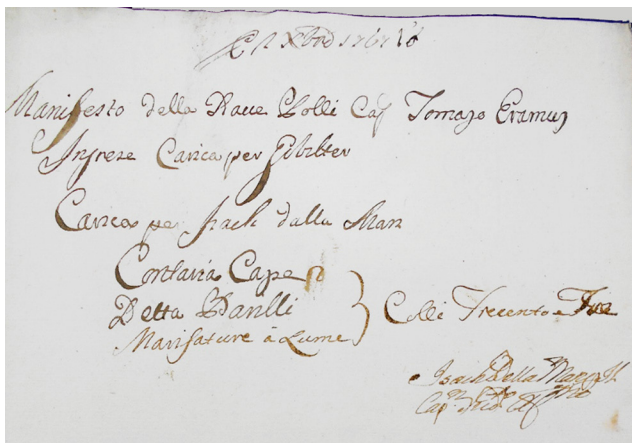 Xbre 1767
Manifesto della Nave Polli Cap Tomaso Eramus
Inglese Carica per Gibilter
Carica per Isach dalla Man
Contaria Casse
Detta Barilli
Manifature à Lume
Colli Trecento e Tre
Isach Della Man
Cap.